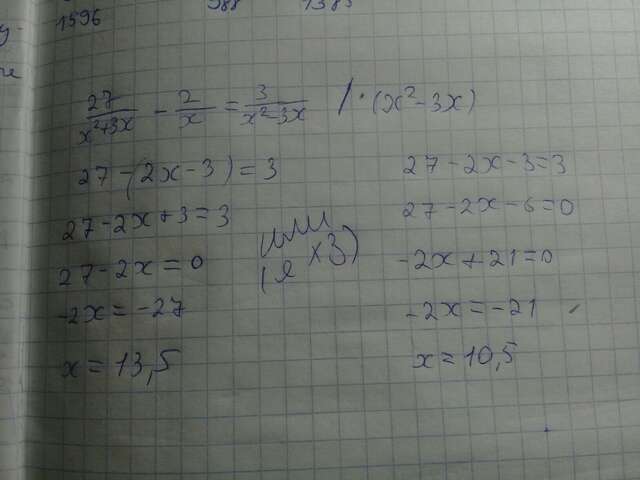 1596
988
1385
27/(x²+3x) - 2/x = 3/(x²-3x) / · (x²-3x)
27-(2x-3)=3
27-2x+3=3
27-2x=0
-2x=-27
x=13,5
или
(Я ХЗ)
27-2x-3=3
27-2x-6=0
-2x+21=0
-2x=-21
x=10,5